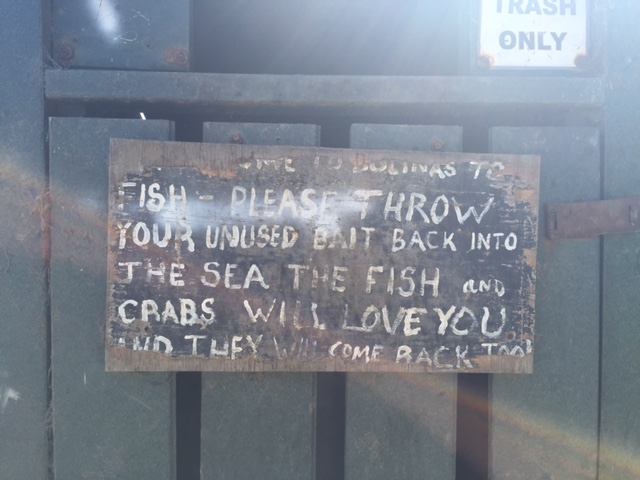 TRASH
ONLY
COME TO BOLINAS TO
FISH - PLEASE THROW
YOUR UNUSED BAIT BACK INTO
THE SEA THE FISH AND
CRABS WILL LOVE YOU
AND THEY WILL COME BACK TOO!